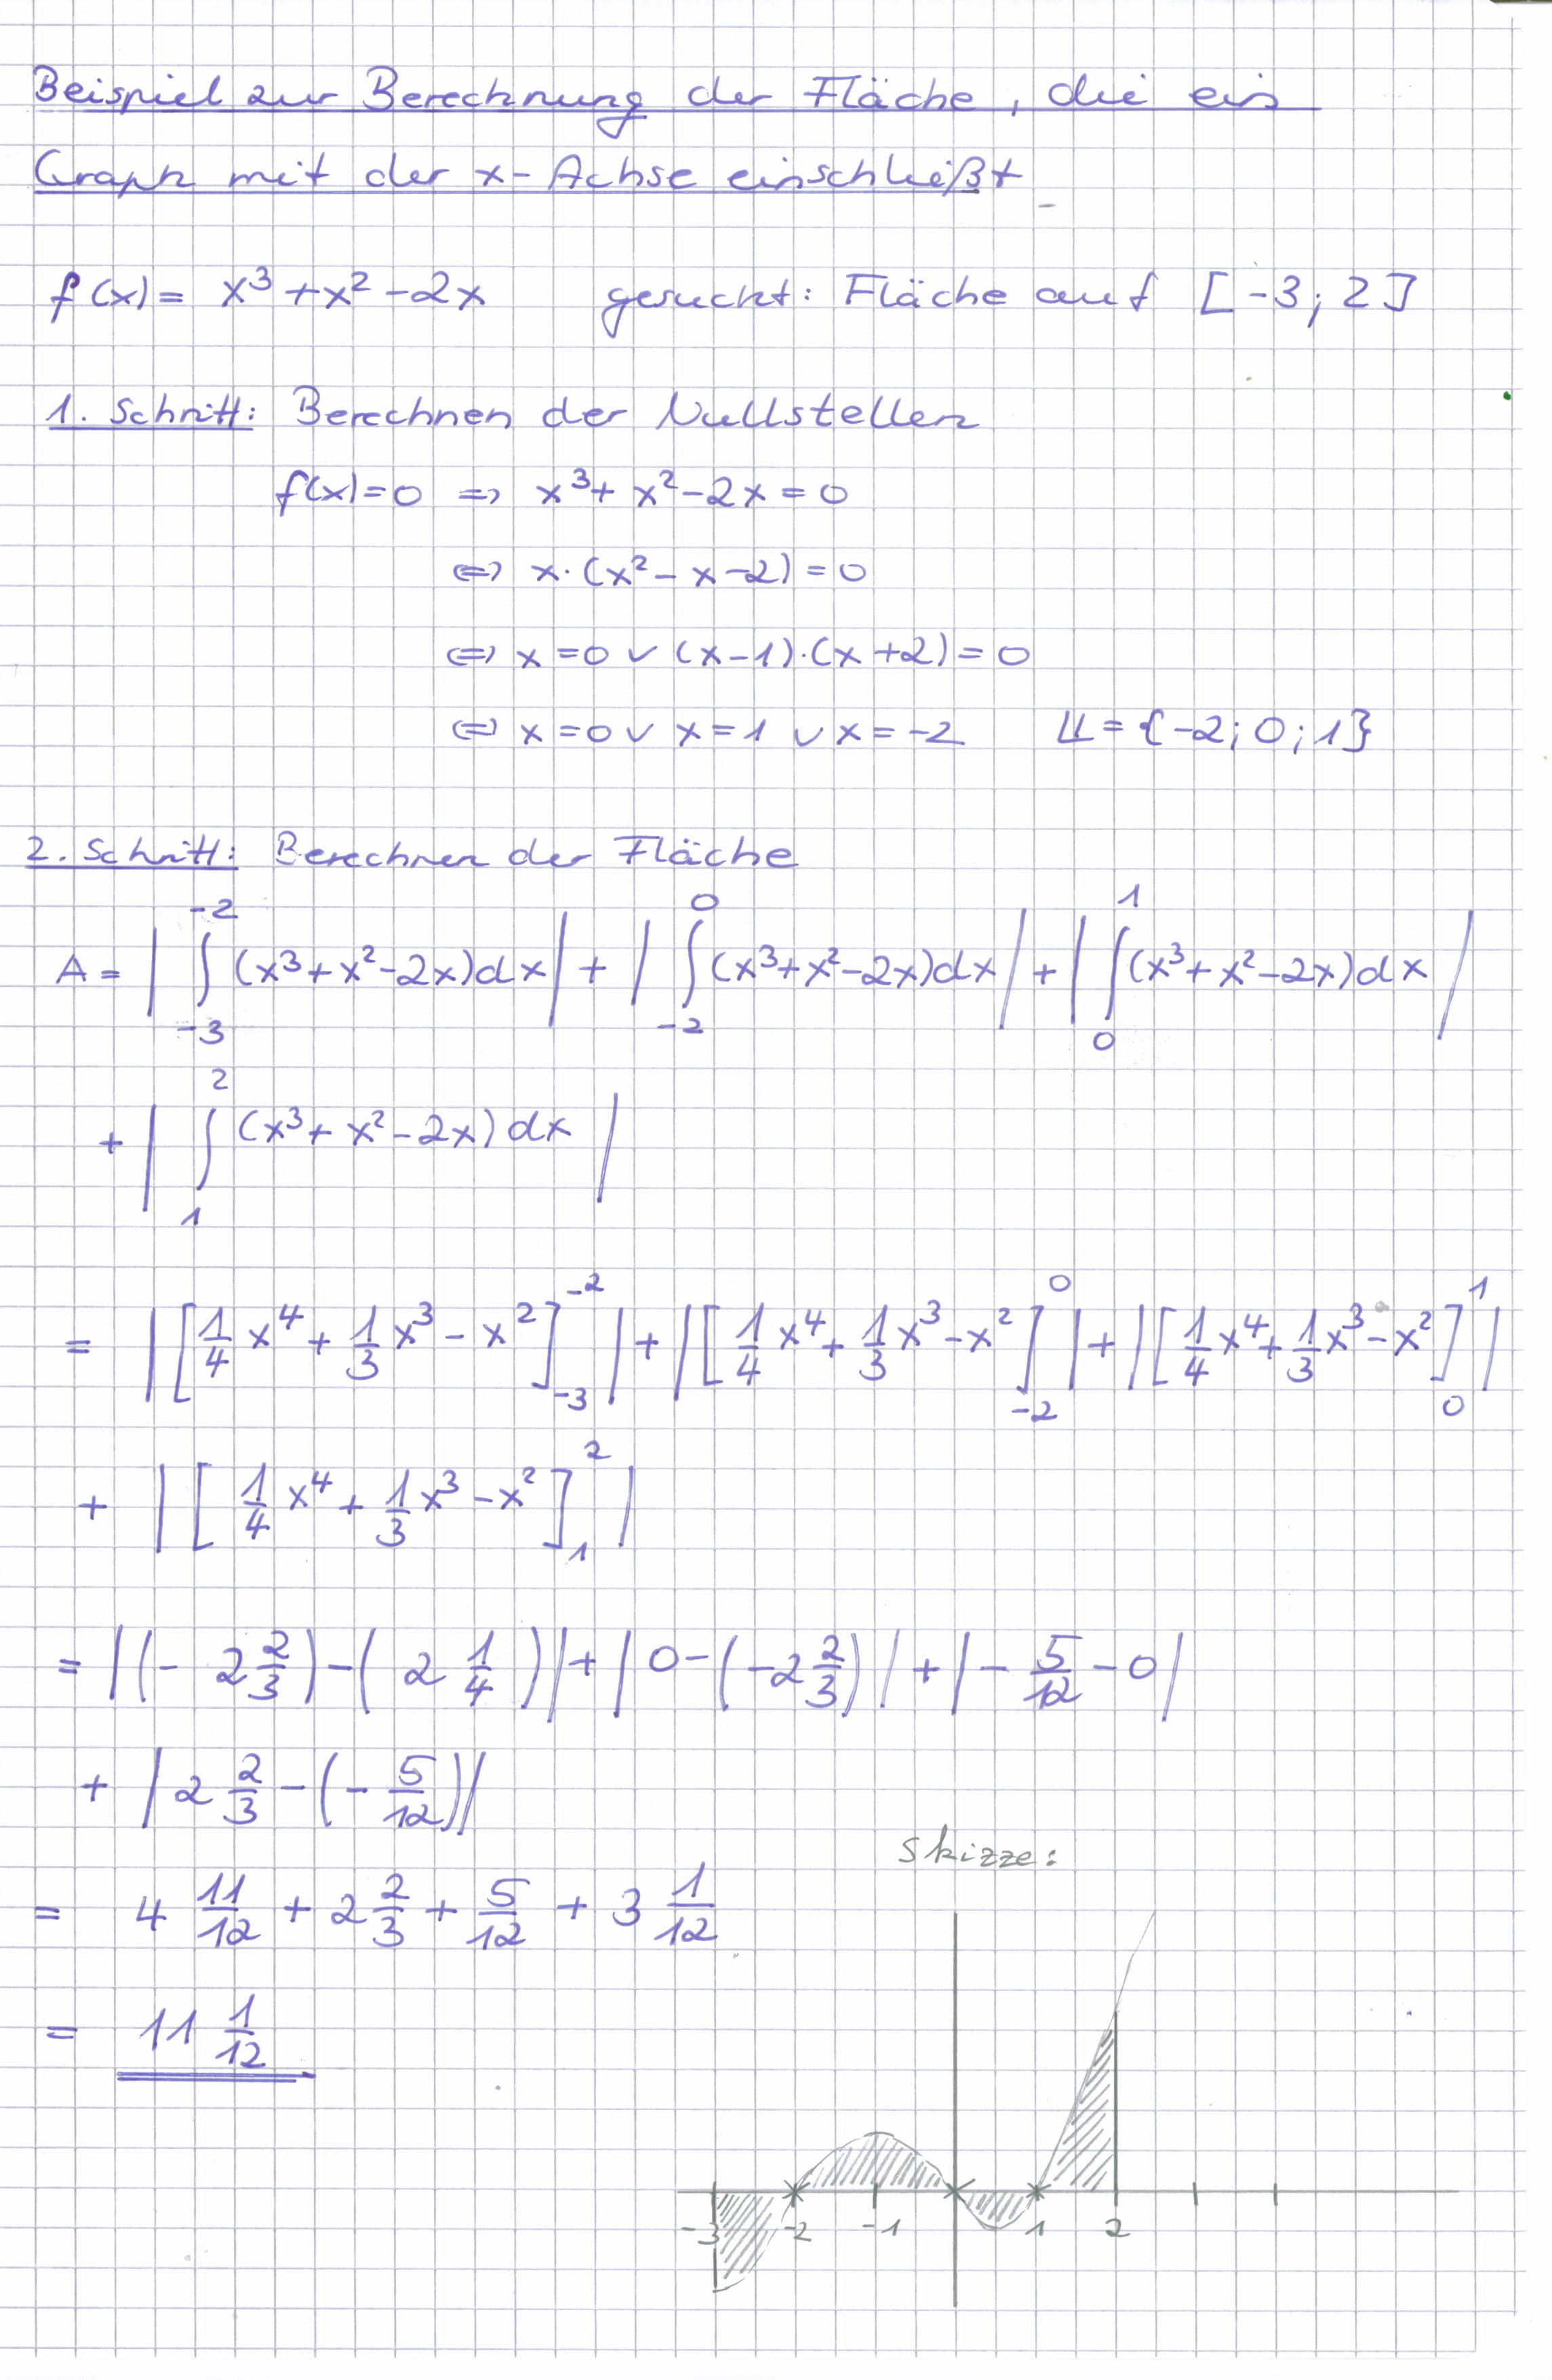 Beispiel zur Berechnung der Fläche, die ein
Graph mit der x-Achse einschließt
f(x) = x³ + x² - 2x gesucht: Fläche auf [-3; 2]
1. Schritt: Berechnen der Nullstellen
f(x) = 0 => x³ + x² - 2x = 0
<=> x · (x² - x - 2) = 0
<=> x = 0 ∨ (x - 1) · (x + 2) = 0
<=> x = 0 ∨ x = 1 ∨ x = -2 𝕃 = {-2; 0; 1}
2. Schritt: Berechnen der Fläche
A = | ∫_{-3}^{-2} (x³ + x² - 2x) dx | + | ∫_{-2}^{0} (x³ + x² - 2x) dx | + | ∫_{0}^{1} (x³ + x² - 2x) dx |
+ | ∫_{1}^{2} (x³ + x² - 2x) dx |
= | [1/4 x⁴ + 1/3 x³ - x²]_{-3}^{-2} | + | [1/4 x⁴ + 1/3 x³ - x²]_{-2}^{0} | + | [1/4 x⁴ + 1/3 x³ - x²]_{0}^{1} |
+ | [1/4 x⁴ + 1/3 x³ - x²]_{1}^{2} |
= | (- 2 2/3) - (2 1/4) | + | 0 - (-2 2/3) | + | - 5/12 - 0 |
+ | 2 2/3 - (- 5/12) |
= 4 11/12 + 2 2/3 + 5/12 + 3 1/12
= 11 1/12
Skizze:
-3 -2 -1 1 2